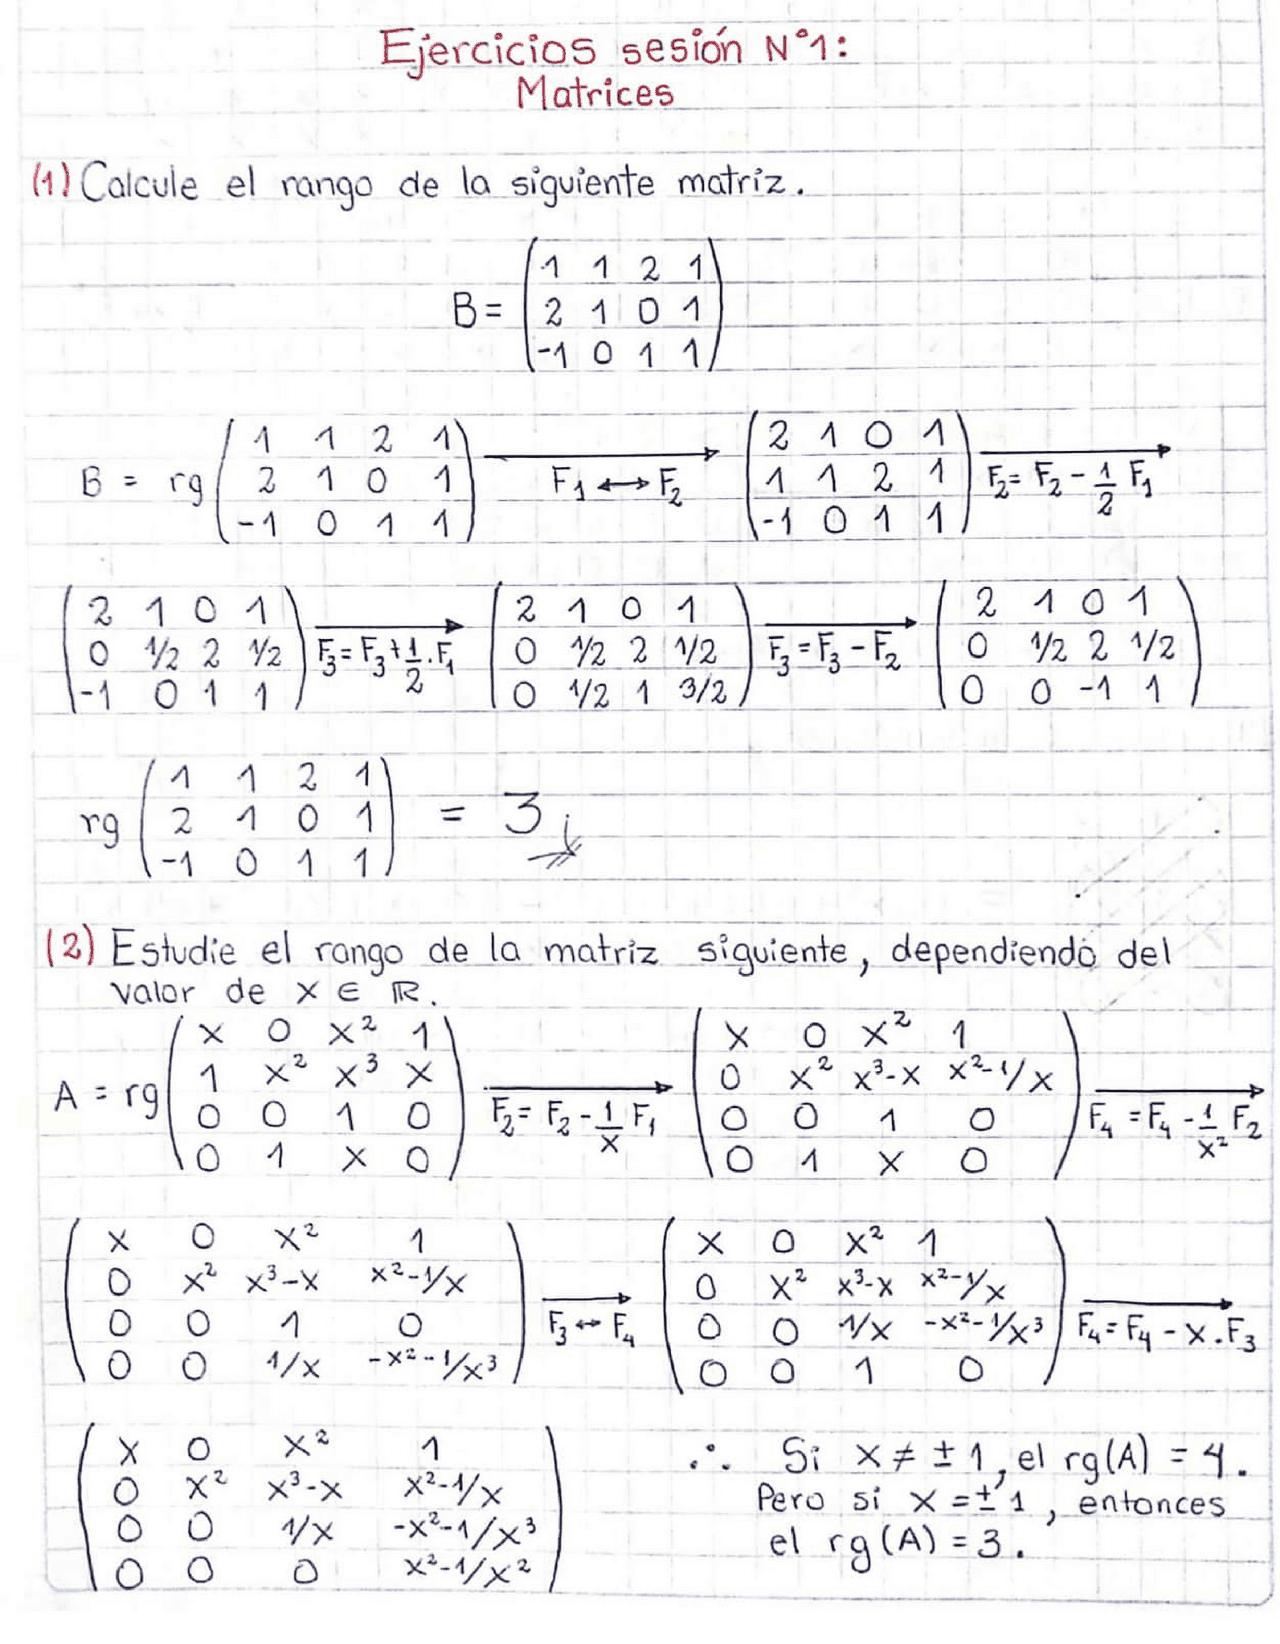 Ejercicios sesión N°1:
Matrices
(1) Calcule el rango de la siguiente matriz.
1 1 2 1
B = 2 1 0 1
-1 0 1 1
1 1 2 1
B = rg 2 1 0 1
-1 0 1 1
F₁ ↔ F₂
2 1 0 1
1 1 2 1
-1 0 1 1
F₂ = F₂ - 1/2 F₁
2 1 0 1
0 1/2 2 1/2
-1 0 1 1
F₃ = F₃ + 1/2 . F₁
2 1 0 1
0 1/2 2 1/2
0 1/2 1 3/2
F₃ = F₃ - F₂
2 1 0 1
0 1/2 2 1/2
0 0 -1 1
1 1 2 1
rg 2 1 0 1 = 3
-1 0 1 1
(2) Estudie el rango de la matriz siguiente, dependiendo del
valor de x ∈ ℝ.
x 0 x² 1
A = rg 1 x² x³ x
0 0 1 0
0 1 x 0
F₂ = F₂ - 1/x F₁
x 0 x² 1
0 x² x³-x x²-1/x
0 0 1 0
0 1 x 0
F₄ = F₄ - 1/x² F₂
x 0 x² 1
0 x² x³-x x²-1/x
0 0 1 0
0 0 1/x -x²-1/x³
F₃ ↔ F₄
x 0 x² 1
0 x² x³-x x²-1/x
0 0 1/x -x²-1/x³
0 0 1 0
F₄ = F₄ - x . F₃
x 0 x² 1
0 x² x³-x x²-1/x
0 0 1/x -x²-1/x³
0 0 0 x²-1/x²
∴ Si x ≠ ± 1, el rg(A) = 4.
Pero si x = ± 1, entonces
el rg(A) = 3.